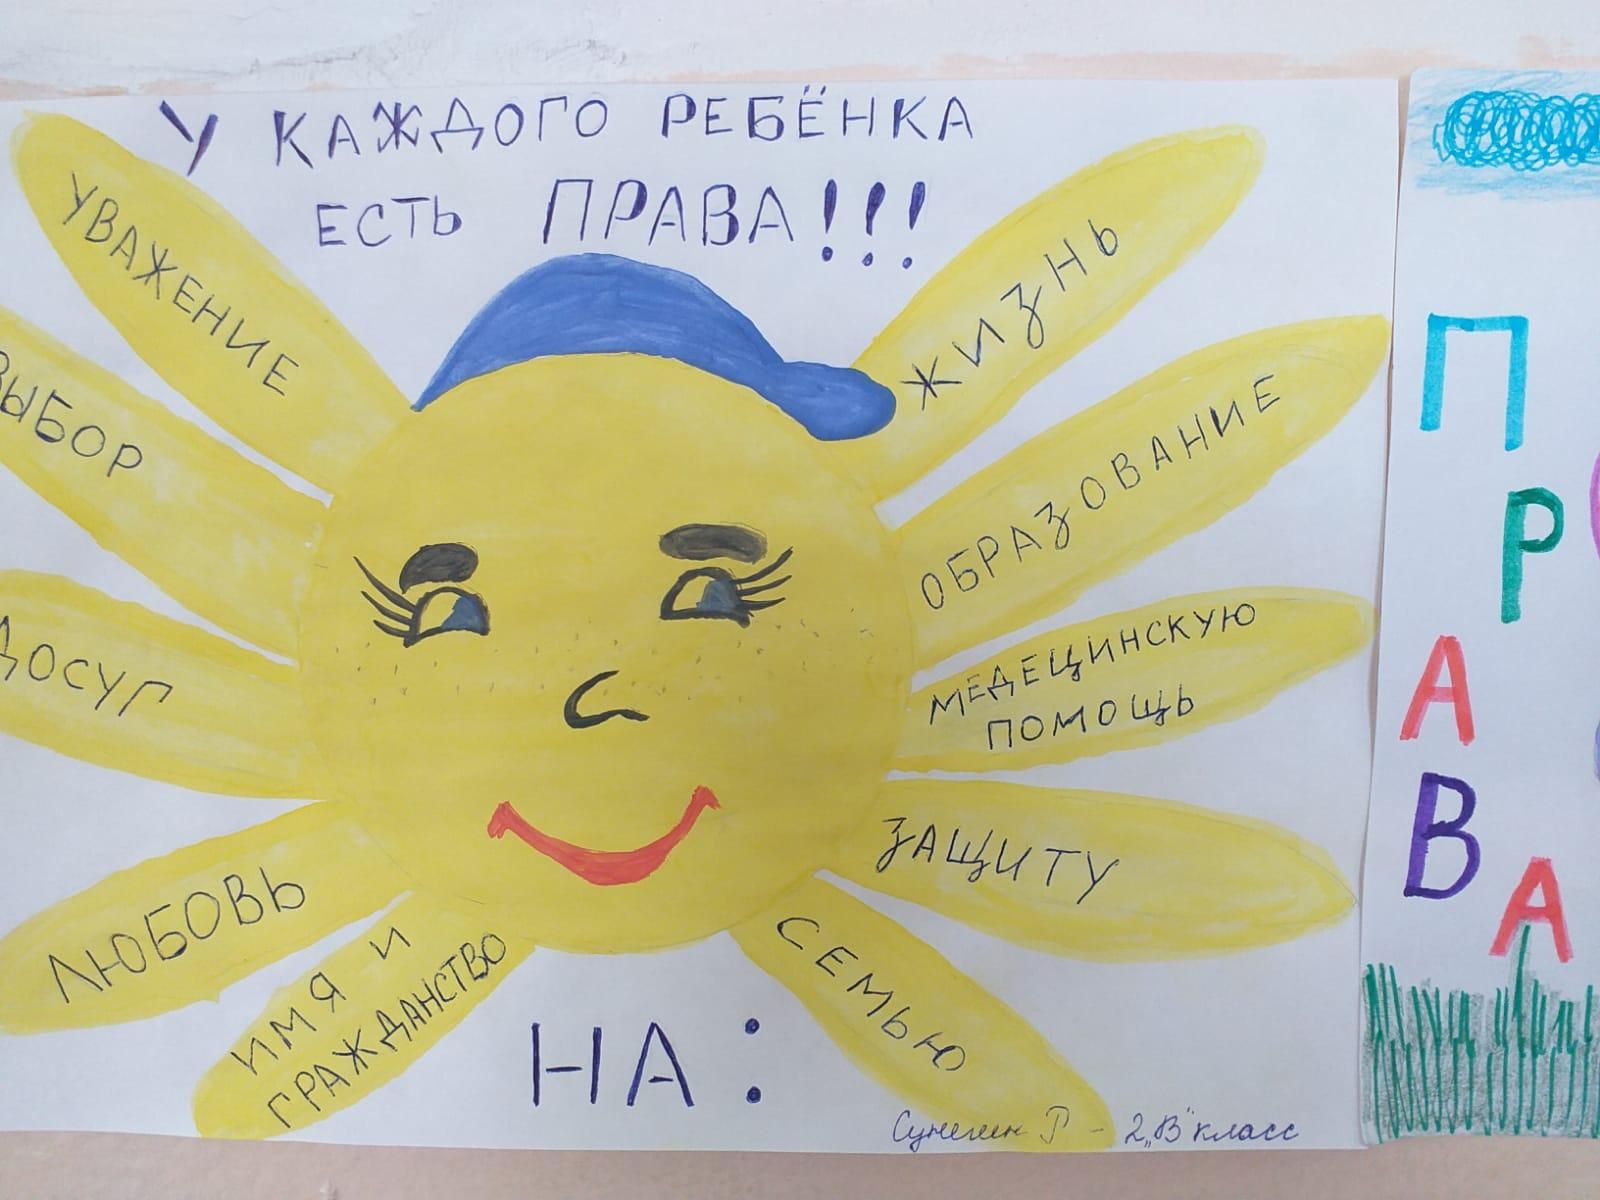 У КАЖДОГО РЕБЁНКА
ЕСТЬ ПРАВА!!!
УВАЖЕНИЕ
ВЫБОР
ДОСУГ
ЛЮБОВЬ
ИМЯ И
ГРАЖДАНСТВО
НА:
ЖИЗНЬ
ОБРАЗОВАНИЕ
МЕДЕЦИНСКУЮ
ПОМОЩЬ
ЗАЩИТУ
СЕМЬЮ
Сунегин Р - 2„В" класс
П
Р
А
В
А